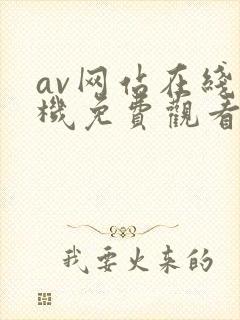 av网佔在綫
機免費觀看
我要火来的